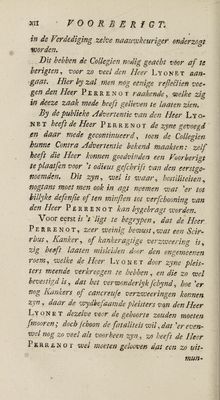 XII VOORBERIGT.
in de Verdediging zelve naauwkeuriger onderzogt
worden.
Dit hebben de Collegien nodig geacht voor af te
berigten, voor zo veel den Heer LYONET aan-
gaat. Hier by zal men nog eenige reflectiën voe-
gen den Heer PERRENOT raakende, welke zig
in deeze zaak mede heeft gelieven te laaten zien.
By de publieke Advertentie van den Heer LYO-
NET heeft de Heer PERRENOT de zyne gevoegd
en daar mede gecontinueerd, toen de Collegien
hunne Contra Advertentie bekend maakten: zelf
heeft die Heer kunnen goedvinden een Voorberigt
te plaatsen voor 't odieus geschrift van den eerstge-
noemden. Dit zyn, wel is waar, hostiliteiten,
nogtans moet men ook in agt neemen wat 'er tot
billyke defensie of ten minsten tot verschooning van
den Heer PERRENOT kan bygebragt worden.
Voor eerst is 't ligt te begrypen, dat de Heer
PERRENOT, zeer weinig bewust, wat een Scir-
rhus, Kanker, of kankeragtige verzweering is,
zig heeft laaten misleiden door den ongemeenen
roem, welke de Heer LYONET door zyne plei-
sters meende verkreegen te hebben, en die zo wel
bevestigd is, dat het verwonderlyk schynd, hoe 'er
nog Kankers of cancreuse verzweeringen konnen
zyn, daar de wydberoemde pleisters van den Heer
LYONET dezelve voor de geboorte zouden moeten
smooren; doch schoon de fataliteit wil, dat 'er even-
wel nog zo veel als voorheen zyn, zo heeft de Heer
PERRENOT wel moeten gelooven dat een zo uit-
mun-